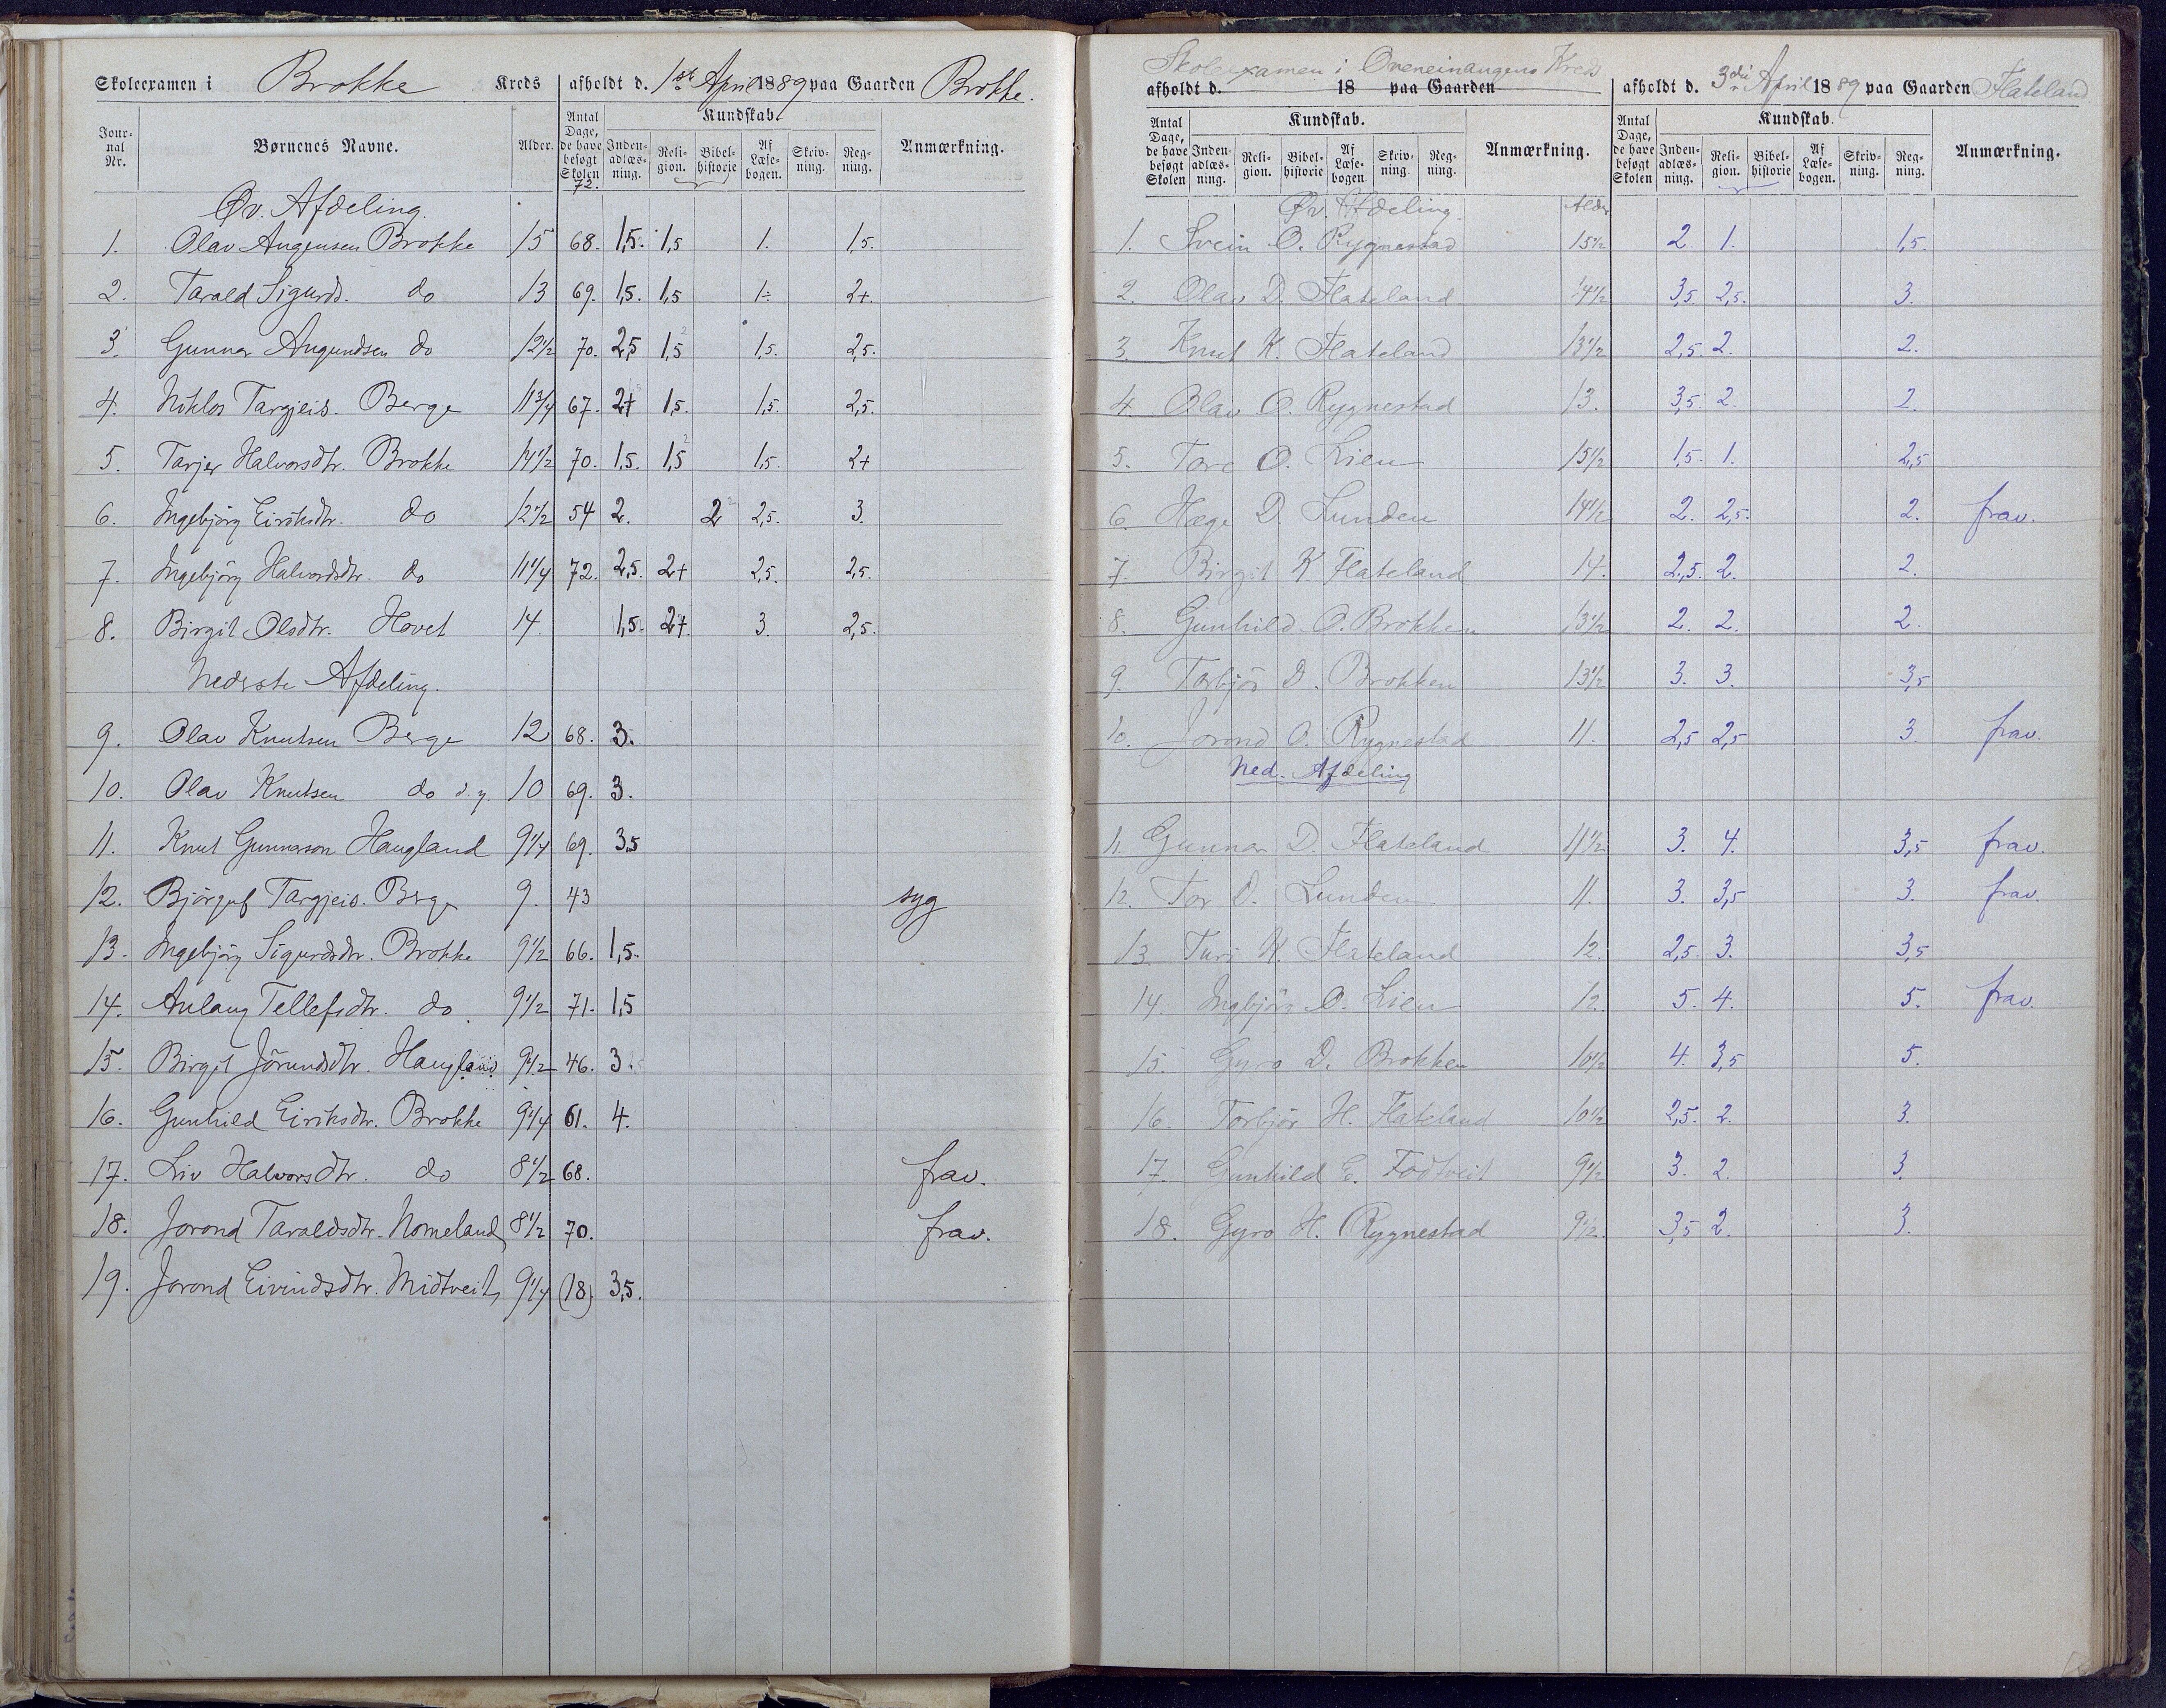 Skoleexamen i Brokke Kreds afholdt d. 1ste April 1889 paa Gaarden Brokke.
Jour-nal Nr. Børnenes Navne. Alder. Antal Dage, de have besøgt Skolen Kundskab. Inden-adlæs-ning. Reli-gion. Bibel-historie Af Læse-bogen. Skriv-ning. Reg-ning. Anmærkning.
72.
Øv. Afdeling.
1. Olav Augensen Brokke 15 68. 1,5. 1,5 1. 1,5.
2. Tarald Sigurds. do 13 69. 1,5. 1,5 1÷ 2+.
3. Gunnar Augundsen do 12 1/2 70. 2,5 1,5 1,5. 2,5.
4. Niklos Targjeis. Berge 11 3/4 67. 2+ 1,5. 1,5. 2,5.
5. Tarjer Halvorsdtr. Brokke 14 1/2 70. 1,5. 1,5 1,5. 2+
6. Ingebjörg Eiriksdtr. do 12 1/2 54 2. 2 2,5. 3.
7. Ingebjörg Halvordsdtr. do 11 1/4 72. 2,5. 2+ 2,5. 2,5.
8. Birgit Olsdtr. Hovet 14. 1,5. 2+. 3. 2,5.
Nederste Afdeling.
9. Olav Knutsen Berge 12 68. 3.
10. Olav Knutsen do d. y. 10 69. 3.
11. Knut Gunnarson Haugland 9 1/4 69. 3,5
12. Björguf Targjeis. Berge 9. 43 syg
13. Ingebjörg Sigurdsdtr. Brokke 9 1/2 66. 1,5.
14. Aulaug Tellefsdtr. do. 9 1/2 71. 1,5
15. Birgit Jörundsdtr. Haugland 9 1/2 46. 3.
16. Gunhild Eiriksdtr. Brokke 9 1/4 61. 4.
17. Liv Halvorsdtr. do 8 1/2 68. frav.
18. Jorond Taraldsdtr. Nomeland 8 1/2 70. frav.
19. Jorond Eivindsdtr. Midtveit 9 1/4 (18). 3,5.
Skoleexamen i Kreds
afholdt d. 18 paa Gaarden afholdt d. 3die April 1889 paa Gaarden Flateland
Antal Dage, de have besøgt Skolen Kundskab. Inden-adlæs-ning. Reli-gion. Bibel-historie Af Læse-bogen. Skriv-ning. Reg-ning. Anmærkning. Antal Dage, de have besøgt Skolen Kundskab. Inden-adlæs-ning. Reli-gion. Bibel-historie Af Læse-bogen. Skriv-ning. Reg-ning. Anmærkning.
Øv. Afdeling. Alder
1. Svein O. Rygnestad 15 1/2 2. 1. 1,5.
2. Olav D. Flateland 14 1/2 3,5. 2,5. 3.
3. Knut K. Flateland 13 1/2 2,5. 2. 2.
4. Olav O. Rygnestad 13. 3,5. 2. 2.
5. Tore O. Lien 15 1/2 1,5. 1. 2,5
6. Hæge D. Lunden 14 1/2 2. 2,5. 2. frav.
7. Birgit K Flateland 14. 2,5. 2. 2.
8. Gunhild O. Brokken 13 1/2 2. 2. 2.
9. Torbjör D. Brokken 13 1/2 3. 3. 3,5
10. Jorond O. Rygnestad 11. 2,5 2,5 3. frav.
Ned. Afdeling
11. Gunnar D. Flateland 11 1/2 3. 4. 3,5 frav.
12. Tor D. Lunden 11. 3. 3,5 3. frav.
13. Turi K. Flateland 12. 2,5. 3. 3,5
14. Ingbjörg O. Lien 12. 5. 4. 5. frav.
15. Gyro D. Brokken 10 1/2 4. 3,5 5.
16. Torbjör H. Flateland 10 1/2 2,5. 2. 3.
17. Gunhild E. Fodtveit 9 1/2 3. 2. 3.
18. Gyro H. Rygnestad 9 1/2 3,5 2. 3.